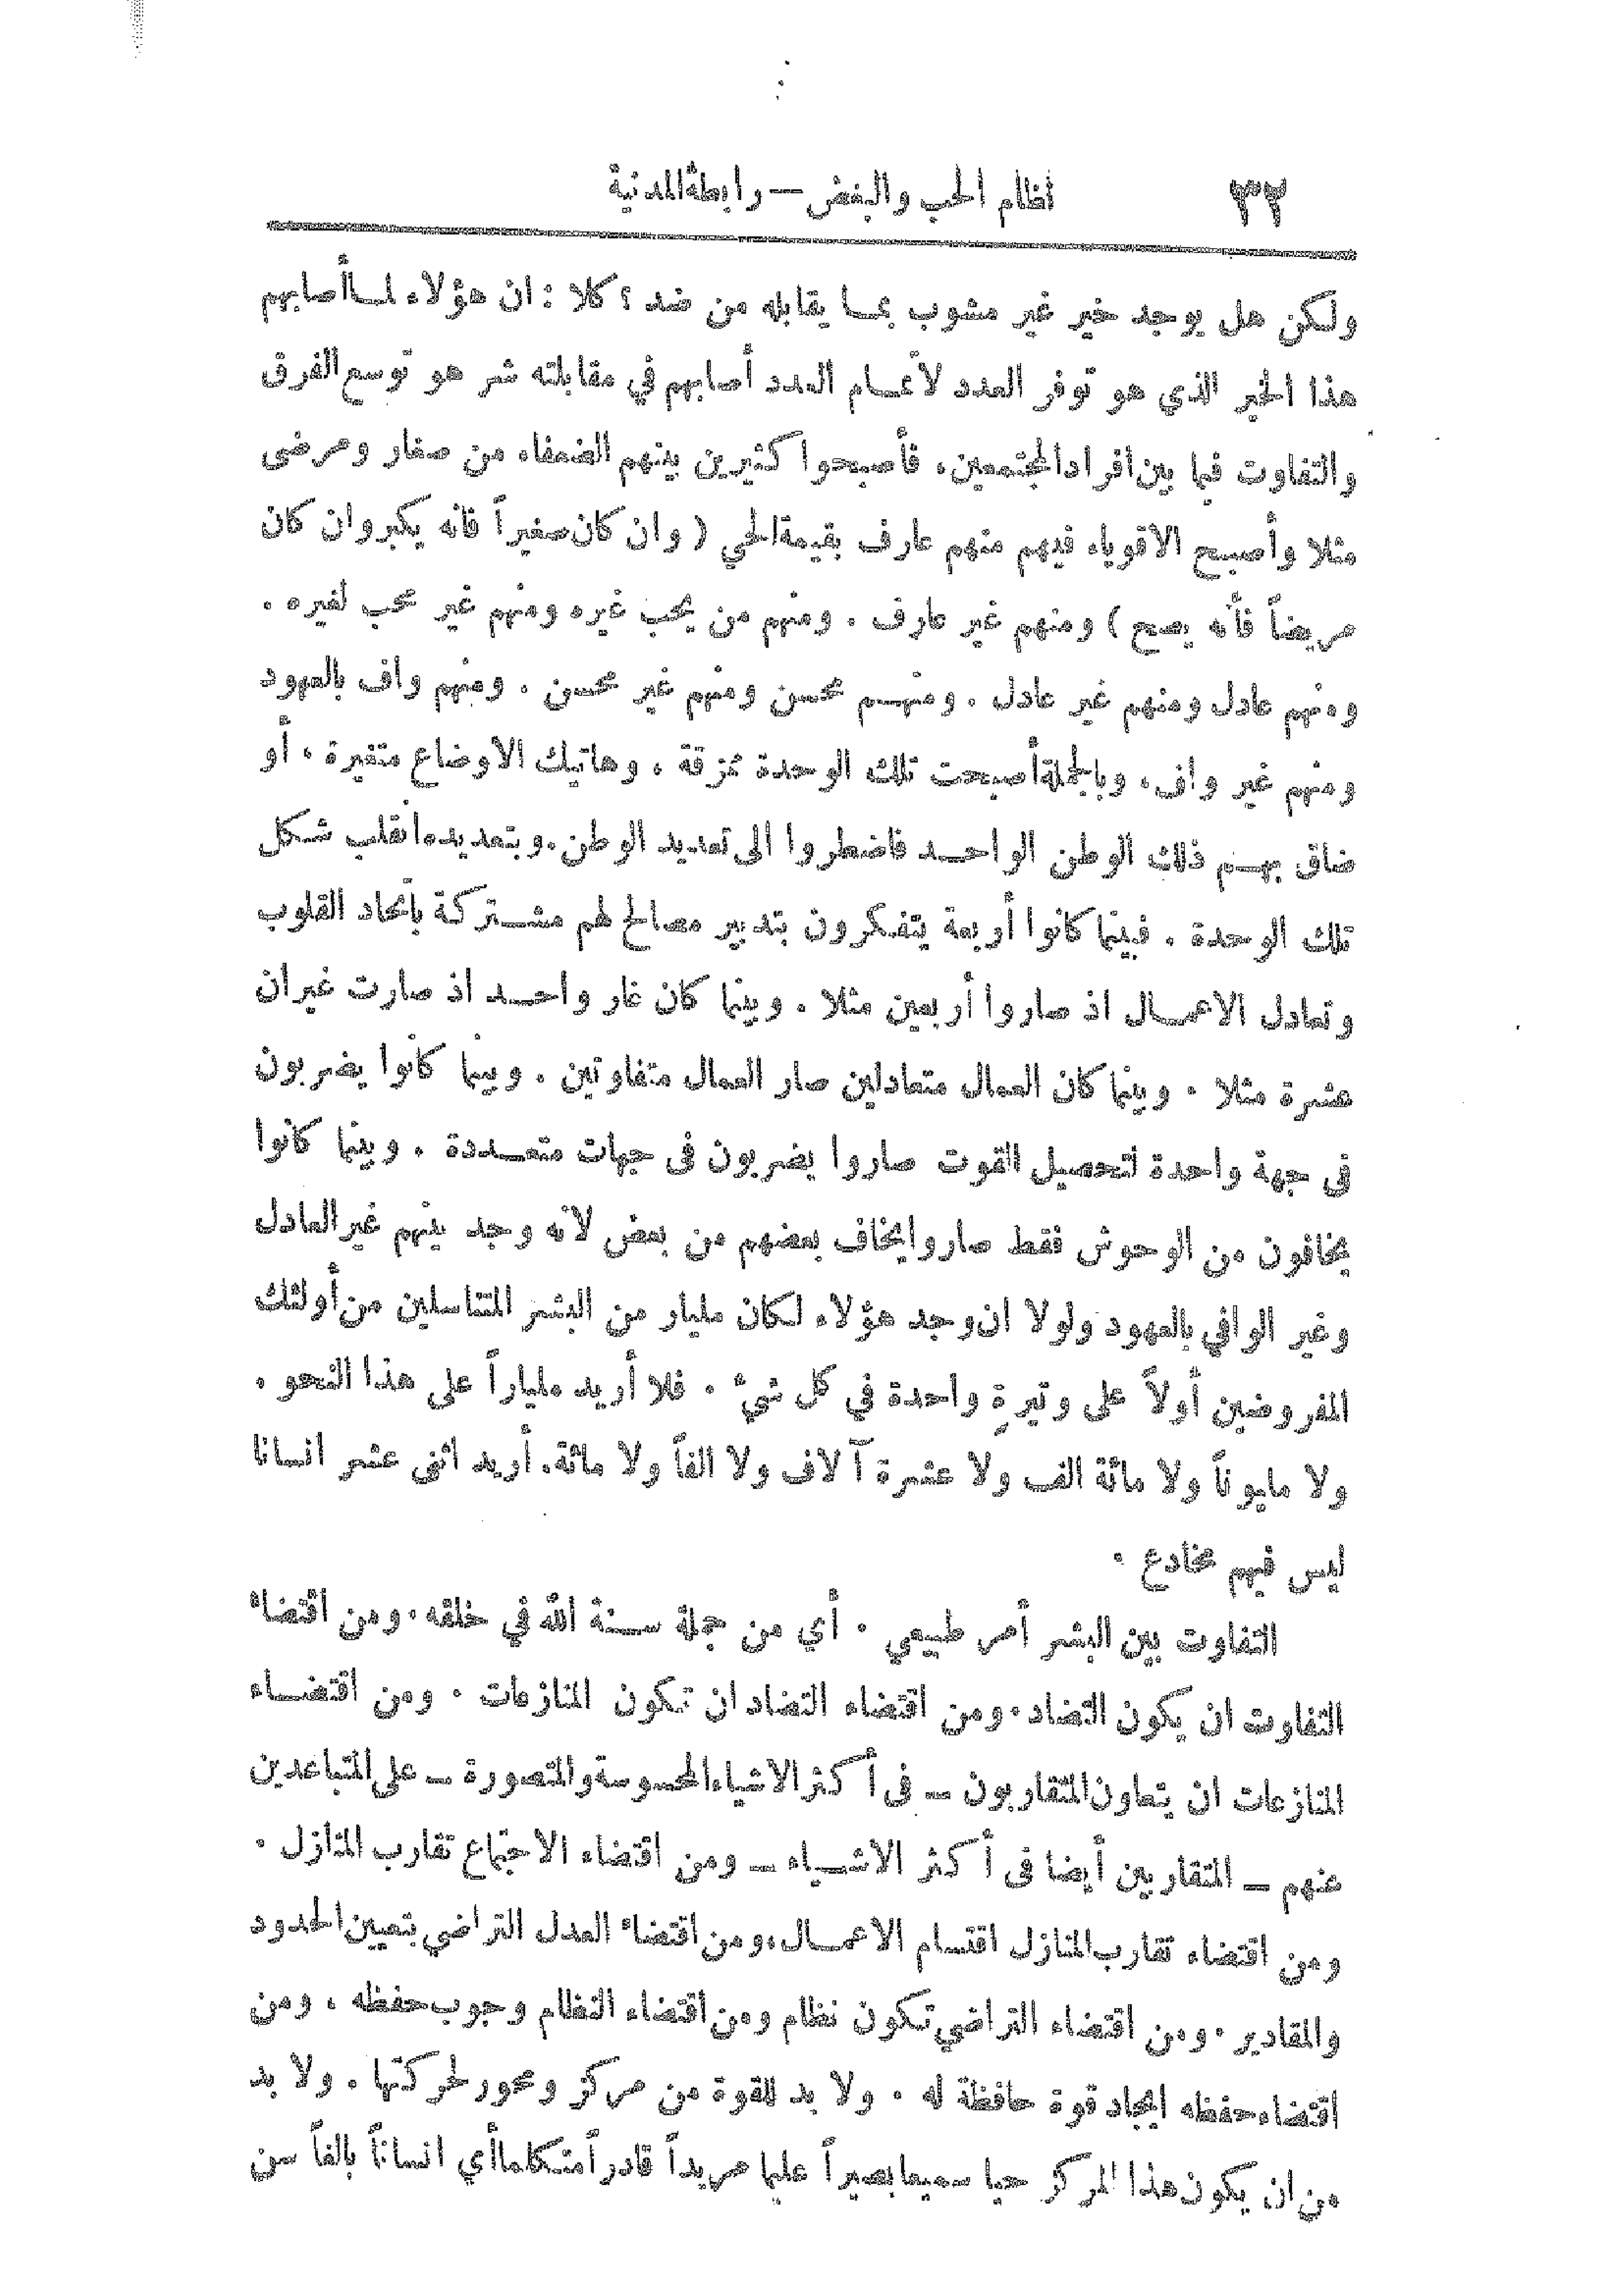 ٣٢ نظام الحب والبغض — رابطة المدنية
ولكن هل يوجد خير غير مشوب بمـا يقابله من ضد ؟ كلا : ان هؤلاء لمـا أصابهم
هذا الخير الذي هو توفر العدد لاتمـام العدد أصابهم في مقابلته شر هو توسع الفرق
والتفاوت فيما بين افراد المجتمعين، فأصبحوا كثيرين بينهم الضعفاء من صغار ومرضى
مثلا وأصبح الاقوياء فيهم منهم عارف بقيمة الحي ( وان كان صغيراً فانه يكبر وان كان
مريضاً فأنه يصح ) ومنهم غير عارف . ومنهم من يحب غيره ومنهم غير محب لغيره .
ومنهم عادل ومنهم غير عادل . ومنهـم محسن ومنهم غير محسن . ومنهم واف بالعهود
ومنهم غير واف، وبالجملة أصبحت تلك الوحدة ممزقة ، وهاتيك الاوضاع متغيرة ، أو
ضاق بهـم ذلك الوطن الواحـد فاضطروا الى تعديد الوطن. وبتعديده انقلب شكل
تلك الوحدة . فبينما كانوا أربعة يتفكرون بتدبير مصالح لهم مشـتركة بأتحاد القلوب
وتعادل الاعمـال اذ صاروا أربعين مثلا . وبينما كان غار واحـد اذ صارت غيران
عشرة مثلا . وبينما كان العمال متعادلين صار العمال متفاوتين . وبينما كانوا يضربون
فى جهة واحدة لتحصيل القوت صاروا يضربون فى جهات متعـددة . وبينما كانوا
يخافون من الوحوش فقط صاروا يخاف بعضهم من بعض لانه وجد بينهم غير العادل
وغير الوافي بالعهود ولولا ان وجد هؤلاء لكان مليار من البشر المتناسلين من أولئك
المفروضين أولاً على وتيرةٍ واحدة في كل شيء . فلا أريد ملياراً على هذا النحو .
ولا مليوناً ولا مائة الف ولا عشرة آلاف ولا الفاً ولا مائة. أريد اثنى عشر انسانا
ليس فيهم مخادع .
التفاوت بين البشر أمر طبيعي . أي من جملة سـنة الله في خلقه. ومن اقتضاء
التفاوت ان يكون التضاد. ومن اقتضاء التضاد ان تكون المنازعات . ومن اقتضـاء
المنازعات ان يتعاون المتقاربون ــ فى أكثر الاشياء المحسوسة والمتصورة ــ على المتباعدين
عنهم ــ المتقاربين أيضا فى أكثر الاشـياء ــ ومن اقتضاء الاجتماع تقارب المنازل .
ومن اقتضاء تقارب المنازل اقتسام الاعمـال، ومن اقتضاء العدل التراضي بتعيين الحدود
والمقادير. ومن اقتضاء التراضي تكون نظام ومن اقتضاء النظام وجوب حفظه ، ومن
اقتضاء حفظه ايجاد قوة حافظة له . ولا بد للقوة من مركز ومحور لحركتها . ولا بد
من ان يكون هذا المركز حيا سميعا بصيراً عليما مريداً قادراً متكلما أي انساناً بالغاً سن